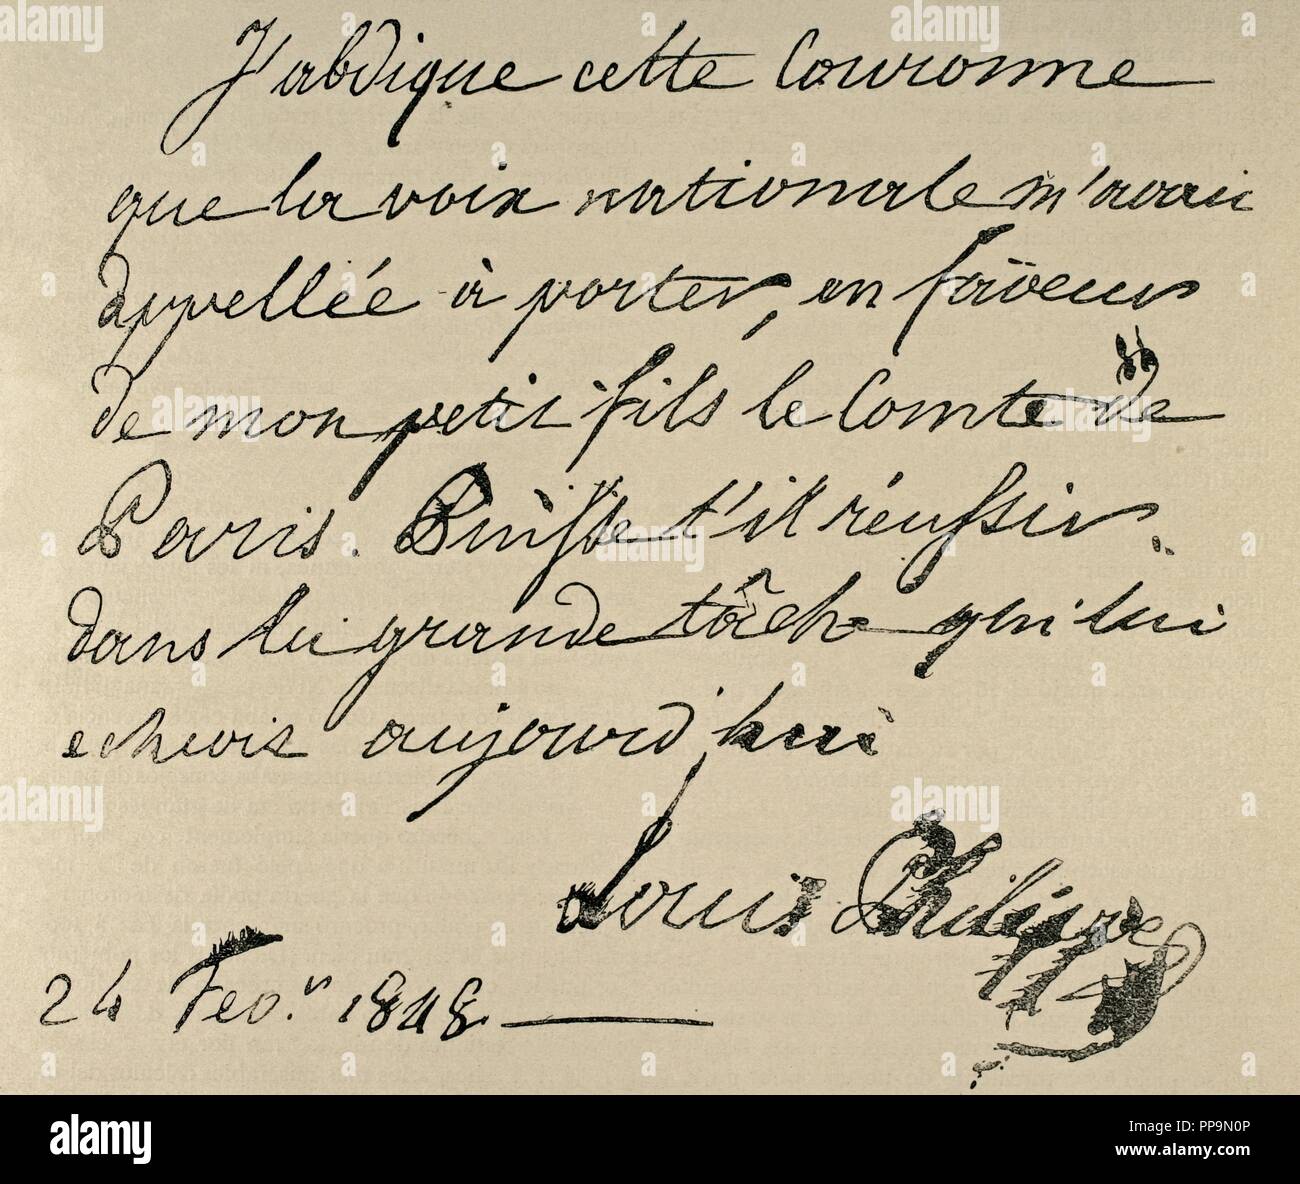 J'abdique cette Couronne
que la voix nationale m'avait
appellée à porter, en faveur
de mon petit fils le Comte de
Paris. Puisse t'il réussir
dans la grande tâche qui lui
echeoit aujourd'hui
Louis Philippe
24 Fevr. 1848.
alamy
Image ID: PP9N0P
www.alamy.com